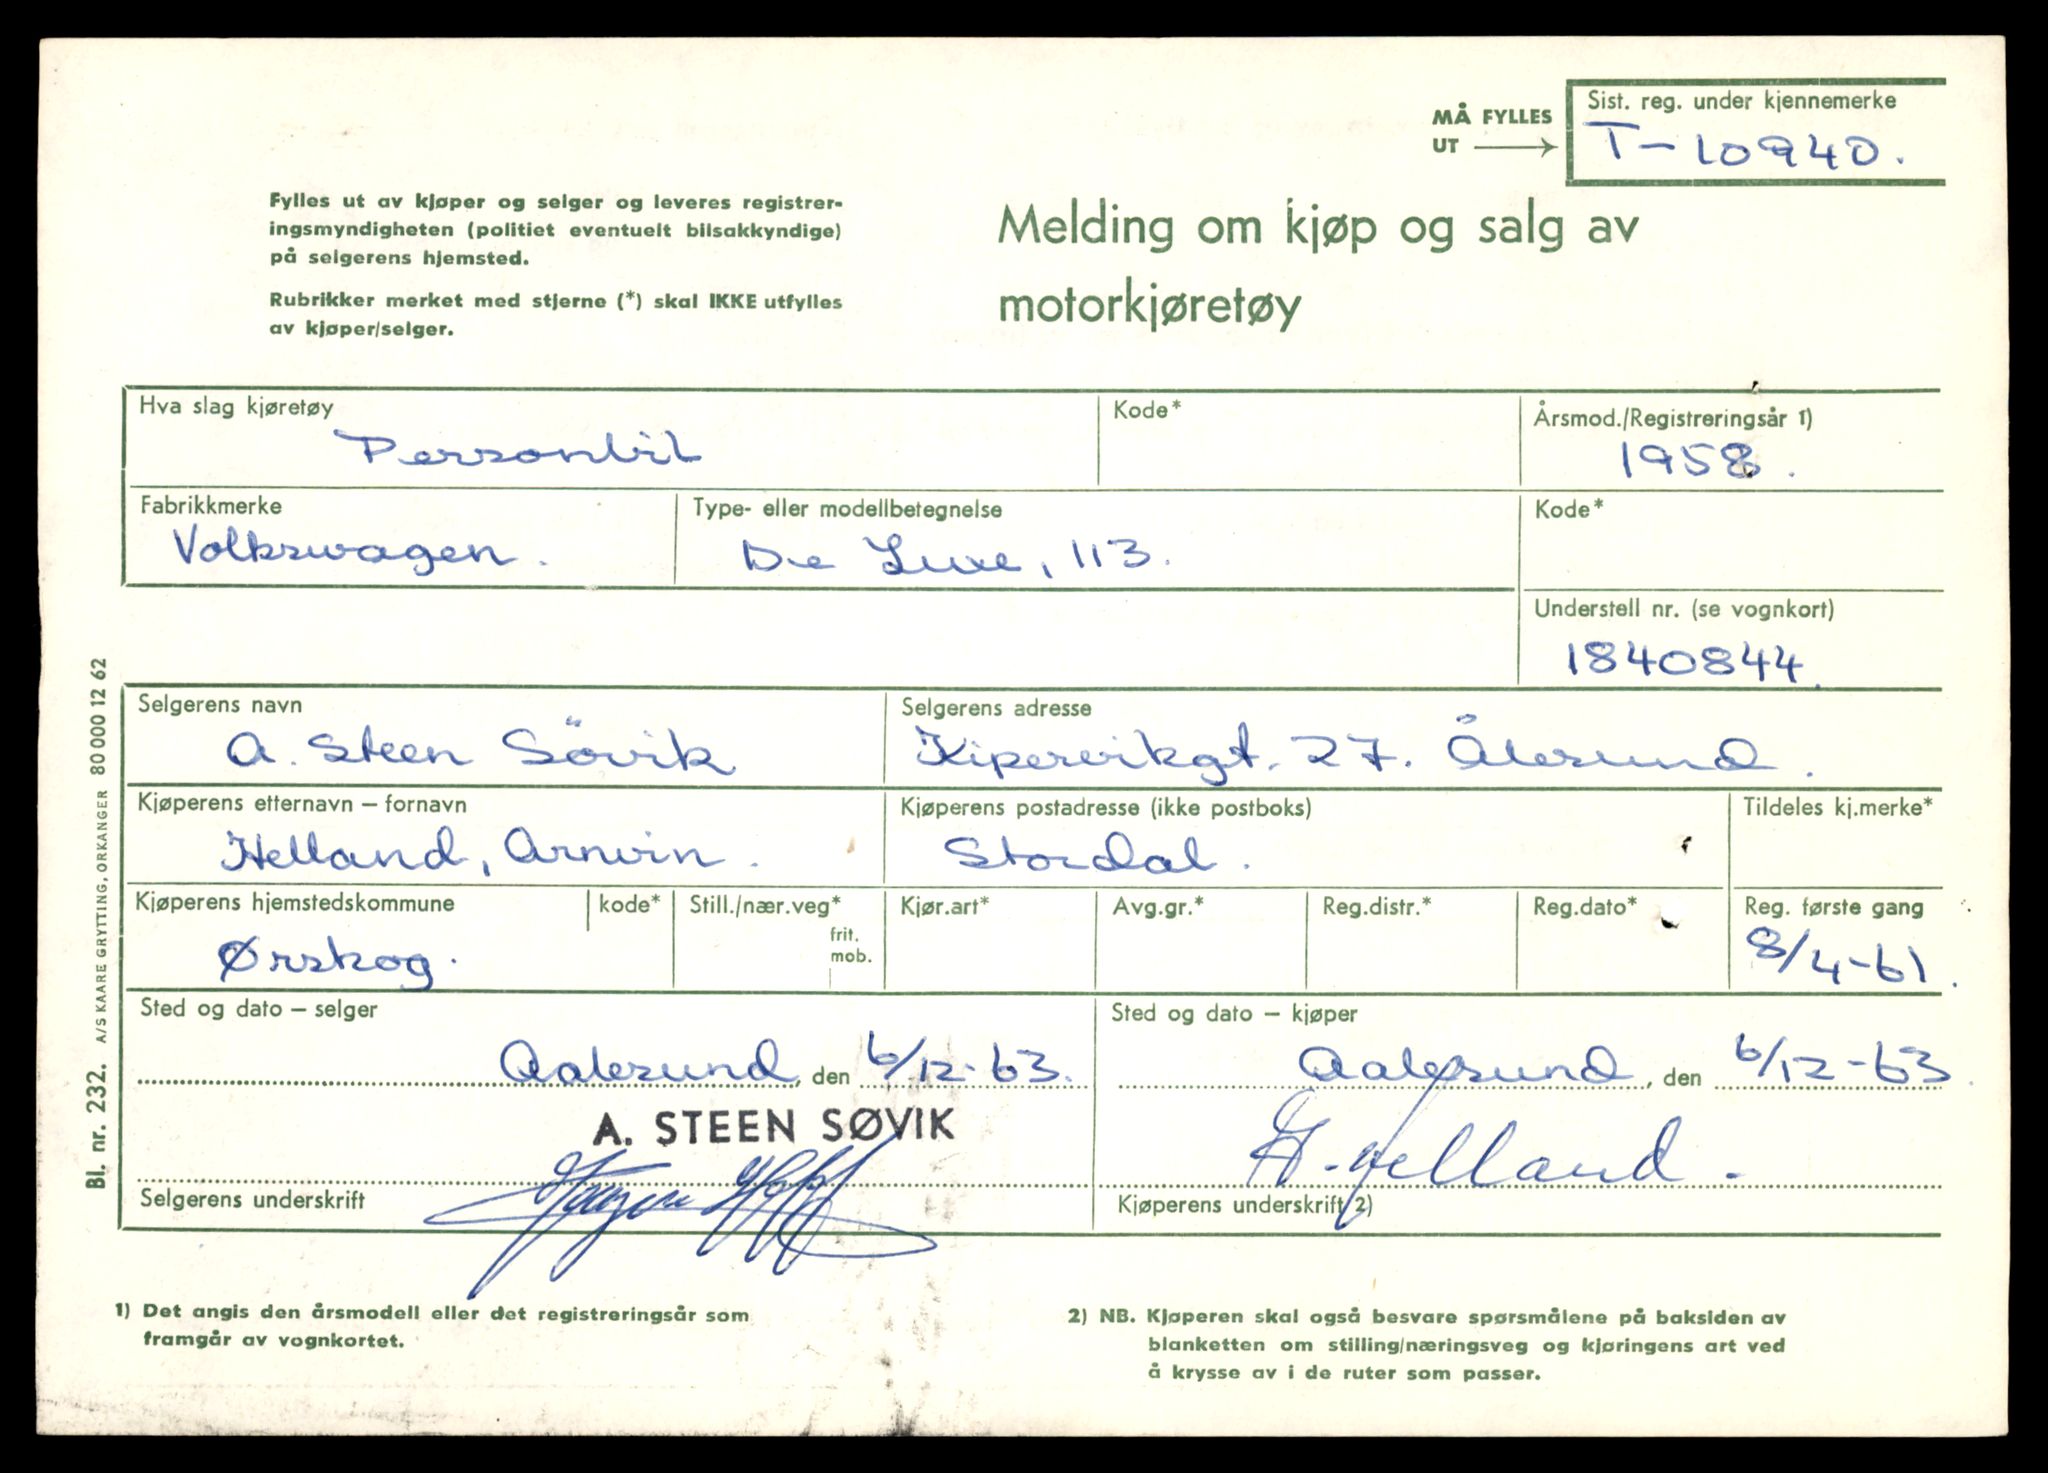 MÅ FYLLES
UT
Sist. reg. under kjennemerke
T-10940.
Fylles ut av kjøper og selger og leveres registrer-
ingsmyndigheten (politiet eventuelt bilsakkyndige)
på selgerens hjemsted.
Rubrikker merket med stjerne (*) skal IKKE utfylles
av kjøper/selger.
Melding om kjøp og salg av
motorkjøretøy
Hva slag kjøretøy
Personbil
Kode*
Årsmod./Registreringsår 1)
1958.
Fabrikkmerke
Volkswagen.
Type- eller modellbetegnelse
De Luxe, 113.
Kode*
Understell nr. (se vognkort)
1840844.
Selgerens navn
A. Steen Sövik
Selgerens adresse
Kipervikgt. 27. Ålesund.
Kjøperens etternavn – fornavn
Helland, Arnvin.
Kjøperens postadresse (ikke postboks)
Stordal.
Tildeles kj.merke*
Kjøperens hjemstedskommune
Ørskog.
kode*
Still./nær.veg*
frit.
mob.
Kjør.art*
Avg.gr.*
Reg.distr.*
Reg.dato*
Reg. første gang
8/4-61.
Sted og dato – selger
Aalesund, den 6/12-63.
Sted og dato – kjøper
Aalesund, den 6/12-63.
A. STEEN SØVIK
Selgerens underskrift
A. Helland.
Kjøperens underskrift 2)
1) Det angis den årsmodell eller det registreringsår som
framgår av vognkortet.
2) NB. Kjøperen skal også besvare spørsmålene på baksiden av
blanketten om stilling/næringsveg og kjøringens art ved
å krysse av i de ruter som passer.
Bl. nr. 232. A/S KAARE GRYTTING, ORKANGER 80 000 12 62